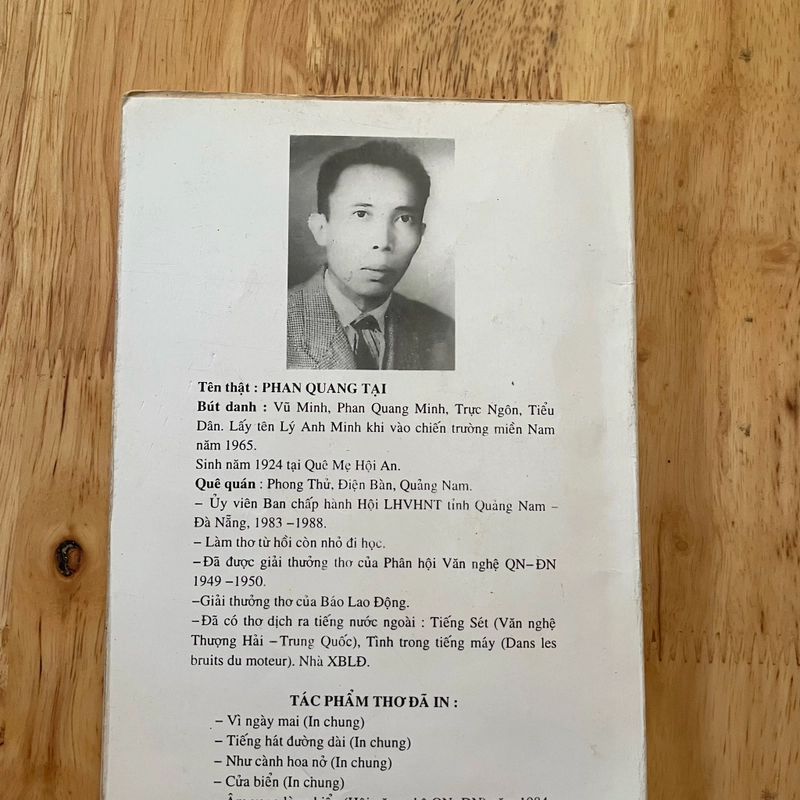 Tên thật : PHAN QUANG TẠI
Bút danh : Vũ Minh, Phan Quang Minh, Trực Ngôn, Tiểu
Dân. Lấy tên Lý Anh Minh khi vào chiến trường miền Nam
năm 1965.
Sinh năm 1924 tại Quê Mẹ Hội An.
Quê quán : Phong Thử, Điện Bàn, Quảng Nam.
– Ủy viên Ban chấp hành Hội LHVHNT tỉnh Quảng Nam –
Đà Nẵng, 1983 –1988.
– Làm thơ từ hồi còn nhỏ đi học.
–Đã được giải thưởng thơ của Phân hội Văn nghệ QN–ĐN
1949 –1950.
–Giải thưởng thơ của Báo Lao Động.
–Đã có thơ dịch ra tiếng nước ngoài : Tiếng Sét (Văn nghệ
Thượng Hải –Trung Quốc), Tình trong tiếng máy (Dans les
bruits du moteur). Nhà XBLĐ.
TÁC PHẨM THƠ ĐÃ IN :
– Vì ngày mai (In chung)
– Tiếng hát đường dài (In chung)
– Như cành hoa nở (In chung)
– Cửa biển (In chung)